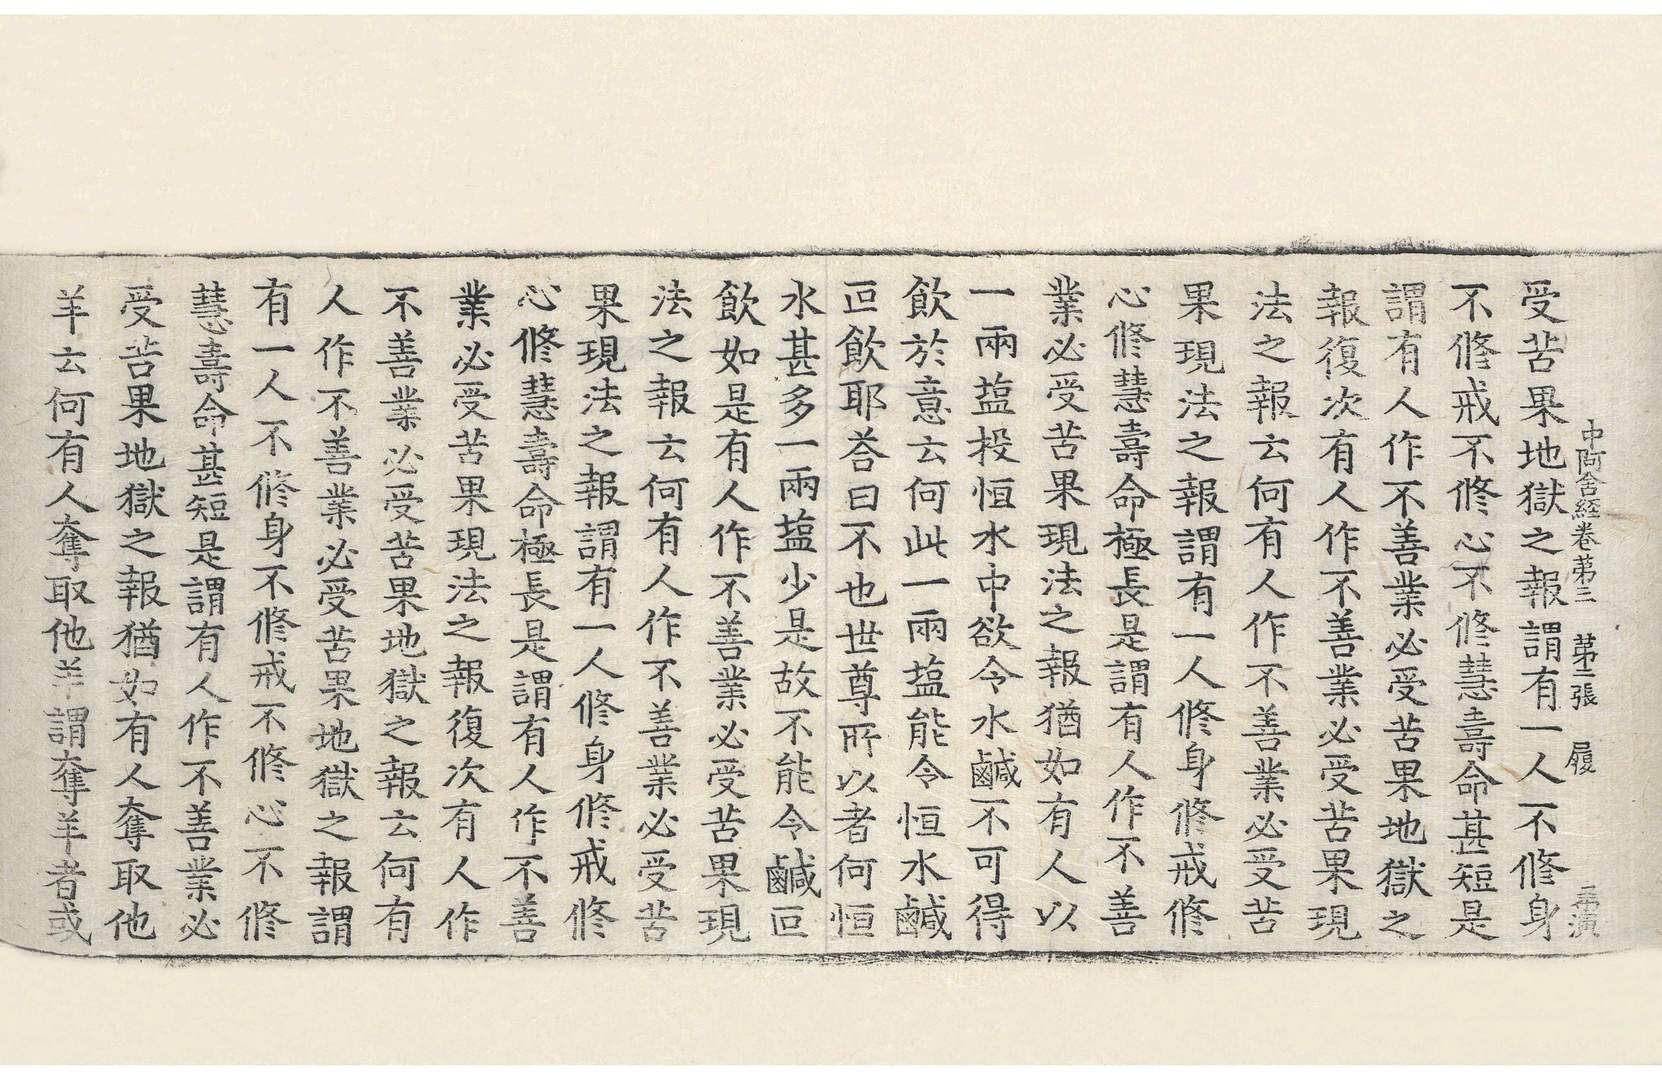 中阿含経卷苐三 苐二張 履
受苦果地獄之報謂有一人不修身
不修戒不修心不修慧壽命甚短是
謂有人作不善業必受苦果地獄之
報復次有人作不善業必受苦果現
法之報云何有人作不善業必受苦
果現法之報謂有一人修身修戒修
心修慧壽命極長是謂有人作不善
業必受苦果現法之報猶如有人以
一兩塩投恒水中欲令水鹹不可得
飲於意云何此一兩塩能令恒水鹹
叵飲耶荅曰不也世尊所以者何恒
水甚多一兩塩少是故不能令鹹叵
飲如是有人作不善業必受苦果現
法之報云何有人作不善業必受苦
果現法之報謂有一人修身修戒修
心修慧壽命極長是謂有人作不善
業必受苦果現法之報復次有人作
不善業必受苦果地獄之報云何有
人作不善業必受苦果地獄之報謂
有一人不修身不修戒不修心不修
慧壽命甚短是謂有人作不善業必
受苦果地獄之報猶如有人奪取他
羊云何有人奪取他羊謂奪羊者或